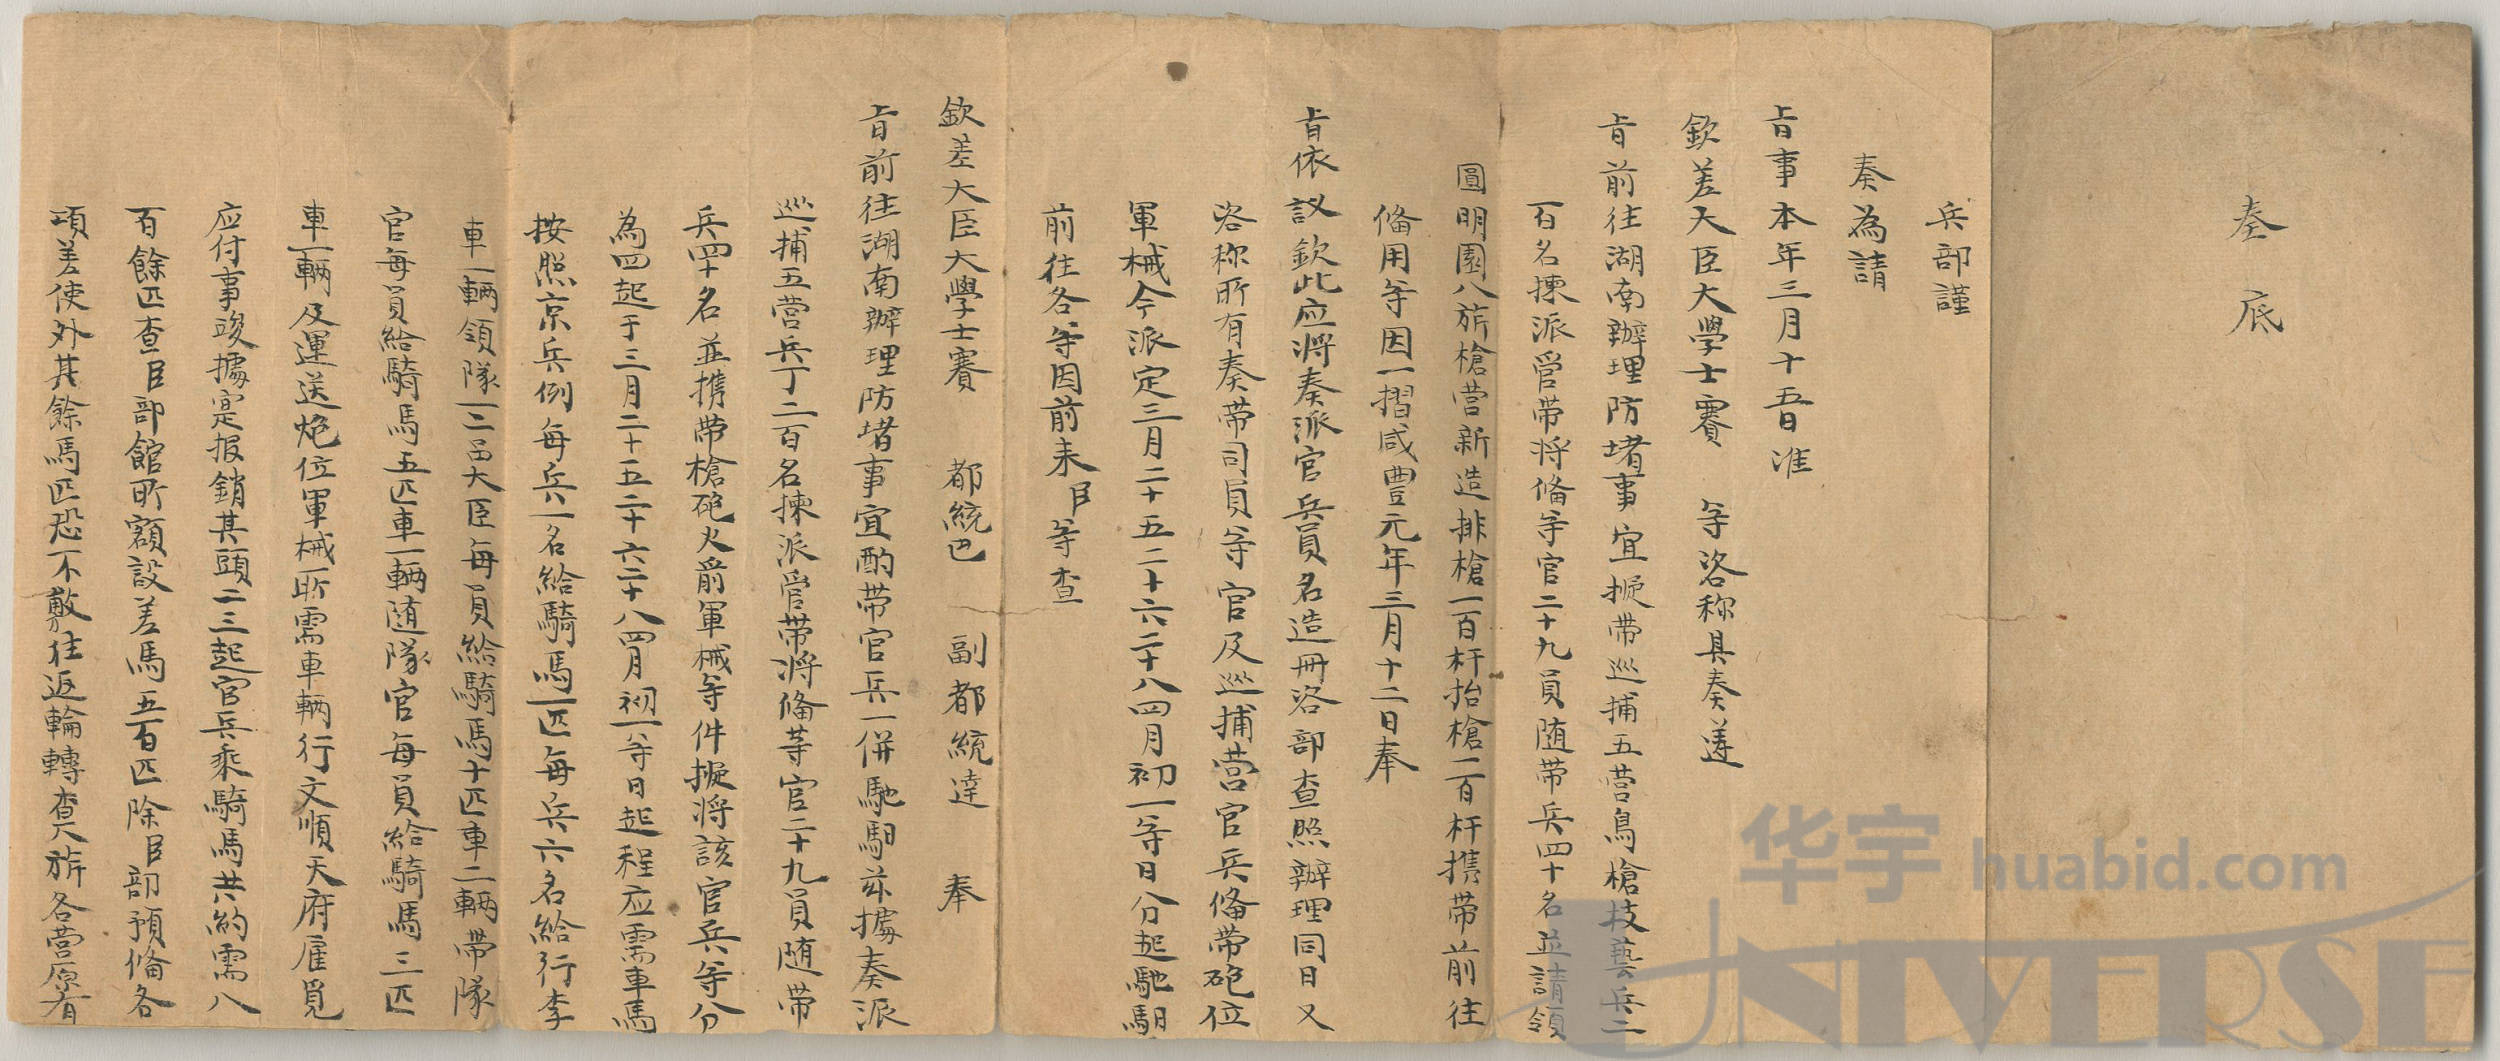 奏底
兵部謹
奏為請
旨事本年三月十五日准
欽差大臣大學士賽　等咨称具奏遵
旨前往湖南辦理防堵事宜擬带巡捕五营鳥槍技藝兵二
百名揀派管带将俻等官二十九員随带兵四十名並請領
圓明園八旂槍营新造排槍一百杆抬槍二百杆携带前往
俻用等因一摺咸豐元年三月十二日奉
旨依議欽此应将奏派官兵員名造冊咨部查照辦理同日又
咨称所有奏带司員等官及巡捕营官兵俻带砲位
軍械今派定三月二十五二十六二十八四月初一等日分起馳馹
前往各等因前来臣等查
欽差大臣大學士賽　都統巴　副都統達　奉
旨前往湖南辦理防堵事宜酌带官兵一併馳馹兹據奏派
巡捕五营兵丁二百名揀派管带将俻等官二十九員随带
兵四十名並携带槍砲火箭軍械等件擬将該官兵等分
為四起于三月二十五二十六二十八四月初一等日起程应需車馬
按照京兵例每兵一名給騎馬一匹每兵六名給行李
車一輛領隊一二品大臣每員給騎馬十匹車二輛带隊
官每員給騎馬五匹車一輛随隊官每員給騎馬三匹
車一輛及運送炮位軍械所需車輛行文順天府雇覓
应付事竣據实报銷其頭二三起官兵乘騎馬共約需八
百餘匹查臣部館所額設差馬五百匹除臣部預俻各
項差使外其餘馬匹恐不敷往返輪轉查八旂各营原有
华宇 huabid.com
UNIVERSE